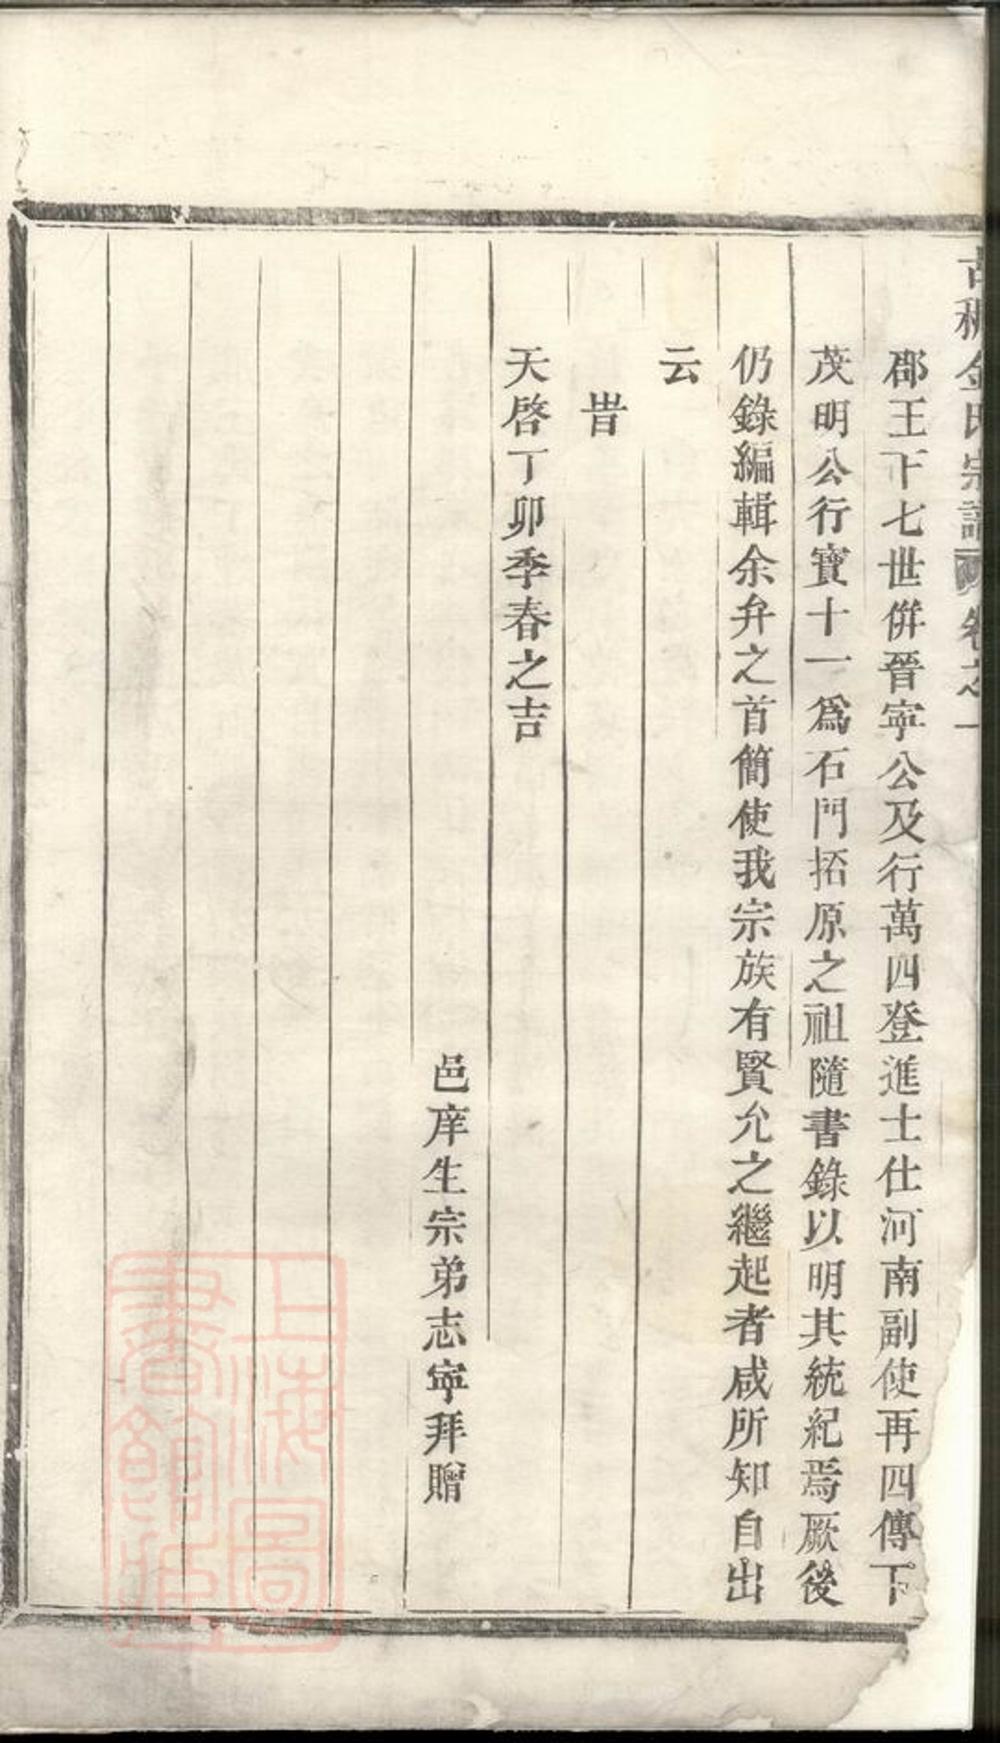 郡王下七世倂晉寧公及行萬四登進士仕河南副使再四傳下
茂明公行寶十一爲石門拓原之祖隨書錄以明其統紀焉厥後
仍錄編輯余弁之首簡使我宗族有賢允之繼起者咸所知自出
云
旹
天啓丁卯季春之吉
邑庠生宗弟志寧拜贈
金氏宗譜 卷之一
上海圖書館藏